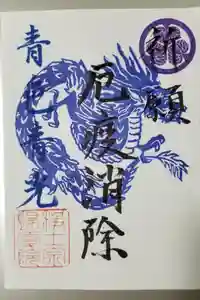 祈願
厄疫消除
青色青光